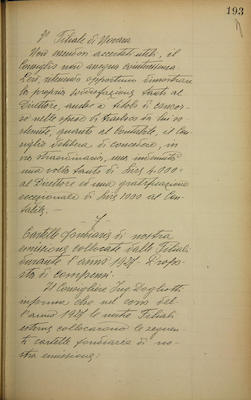 193
3° Filiale di Novara
Non essendovi accertati utili, il
Consiglio non assegna cointeressenza.
Però, ritenendo opportuno dimostrare
la propria soddisfazione tanto al
Direttore, anche a titolo di concor-
so nelle spese di trasloco da lui so-
stenute, quanto al Contabile, il Con-
siglio delibera di concedere, in
via straordinaria, una indennità
una volta tanto di Lire 4.000=
al Direttore ed una gratificazione
eccezionale di Lire 1000 al Con-
tabile. —
Cartelle fondiarie di nostra
emissione collocate dalle Filiali
durante l'anno 1927. Propo-
sta di compensi.
Il Consigliere Ing. Dogliotti
informa che nel corso del-
l'anno 1927 le nostre Filiali
esterne collocarono le seguen-
ti cartelle fondiarie di no-
stra emissione: